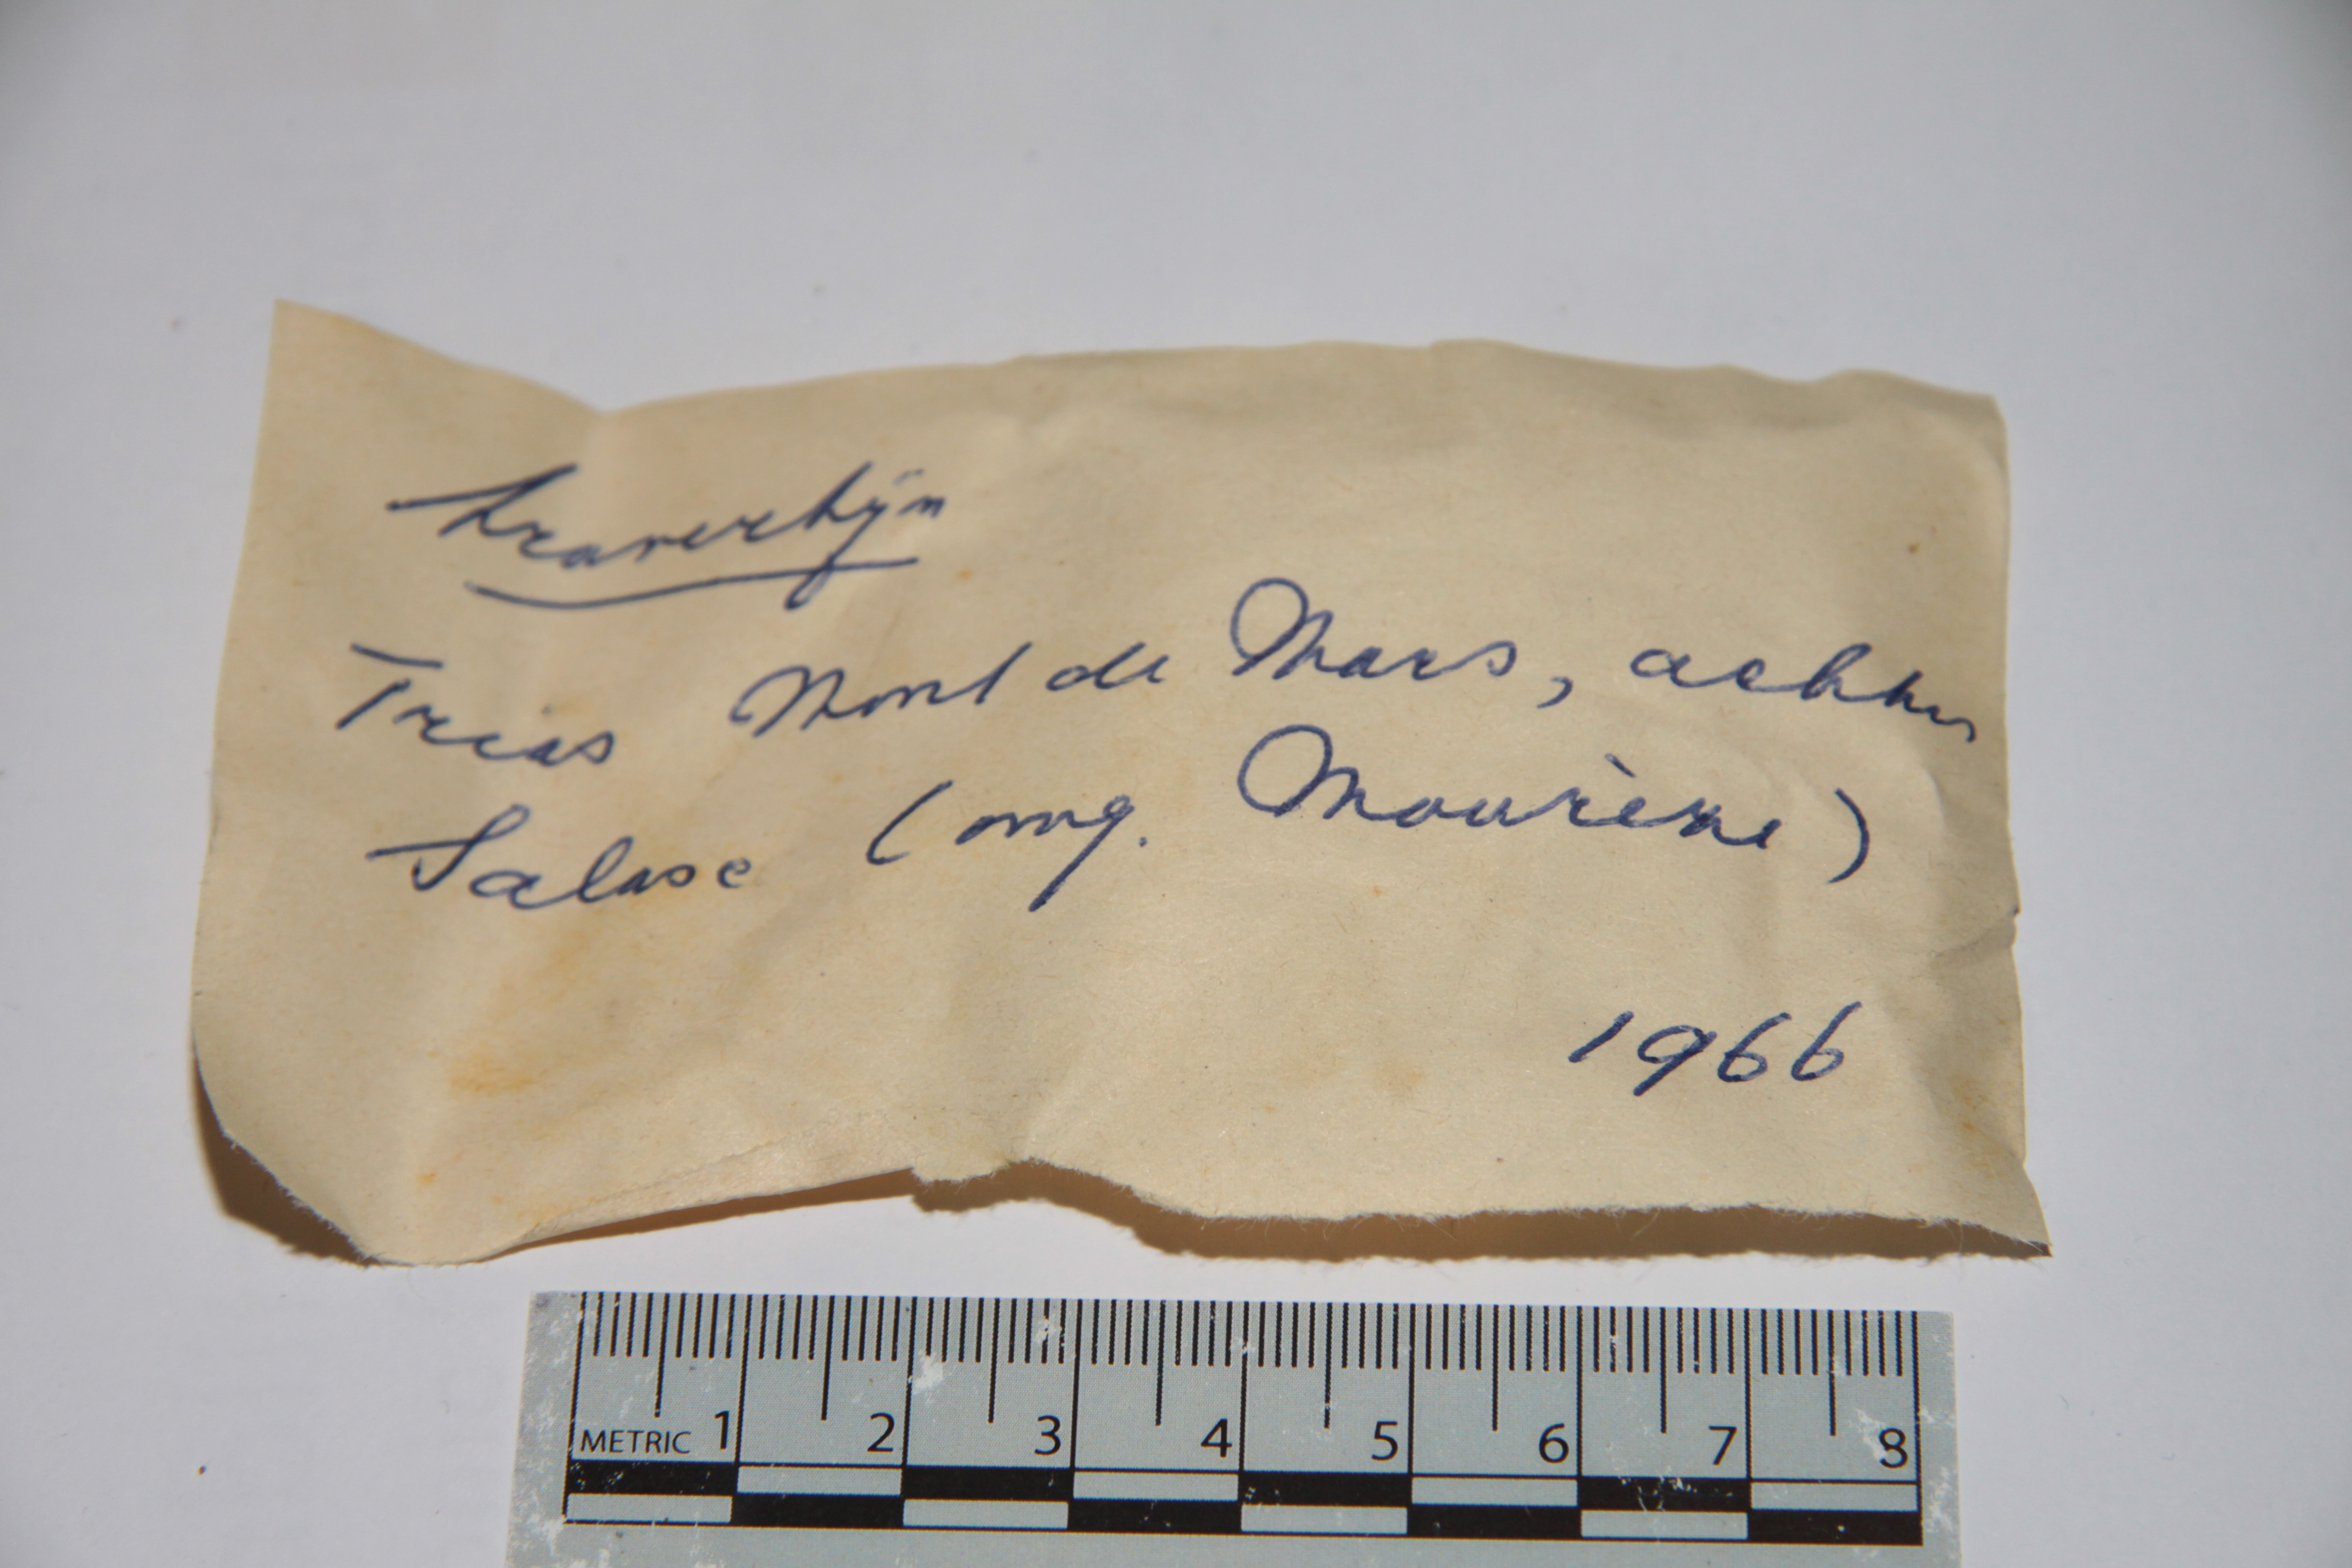 Traverhijn
Trias Mont de Mars, achter
Salase (omg. Mourèze)
1966
METRIC 1 2 3 4 5 6 7 8